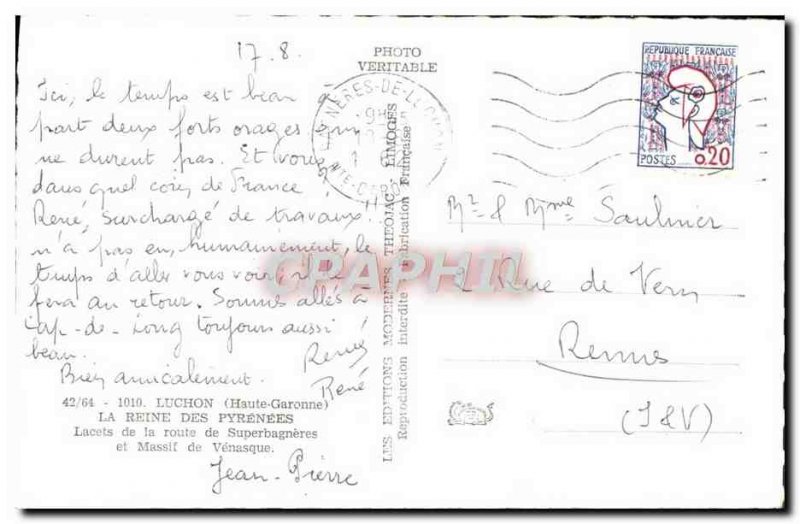 17.8.
Ici, le temps est beau
part deux forts orages qui
ne durent pas. Et vous
dans quel coin de France
René, surchargé de travaux
n'a pas eu, humainement, le
temps d'aller vous voir,
fera au retour. Sommes allés à
Cap-de-Long toujours aussi
beau.
Bien amicalement.
René
Jean-Pierre
42/64 - 1010. LUCHON (Haute-Garonne)
LA REINE DES PYRÉNÉES
Lacets de la route de Superbagnères
et Massif de Vénasque.
PHOTO
VERITABLE
LES EDITIONS MODERNES THEOJAC, LIMOGES
Reproduction interdite Fabrication Française
REPUBLIQUE FRANÇAISE
POSTES 0.20
Mr & Mme Saulnier
2 Rue de Vern
Rennes
(I&V)
CPAPHIL